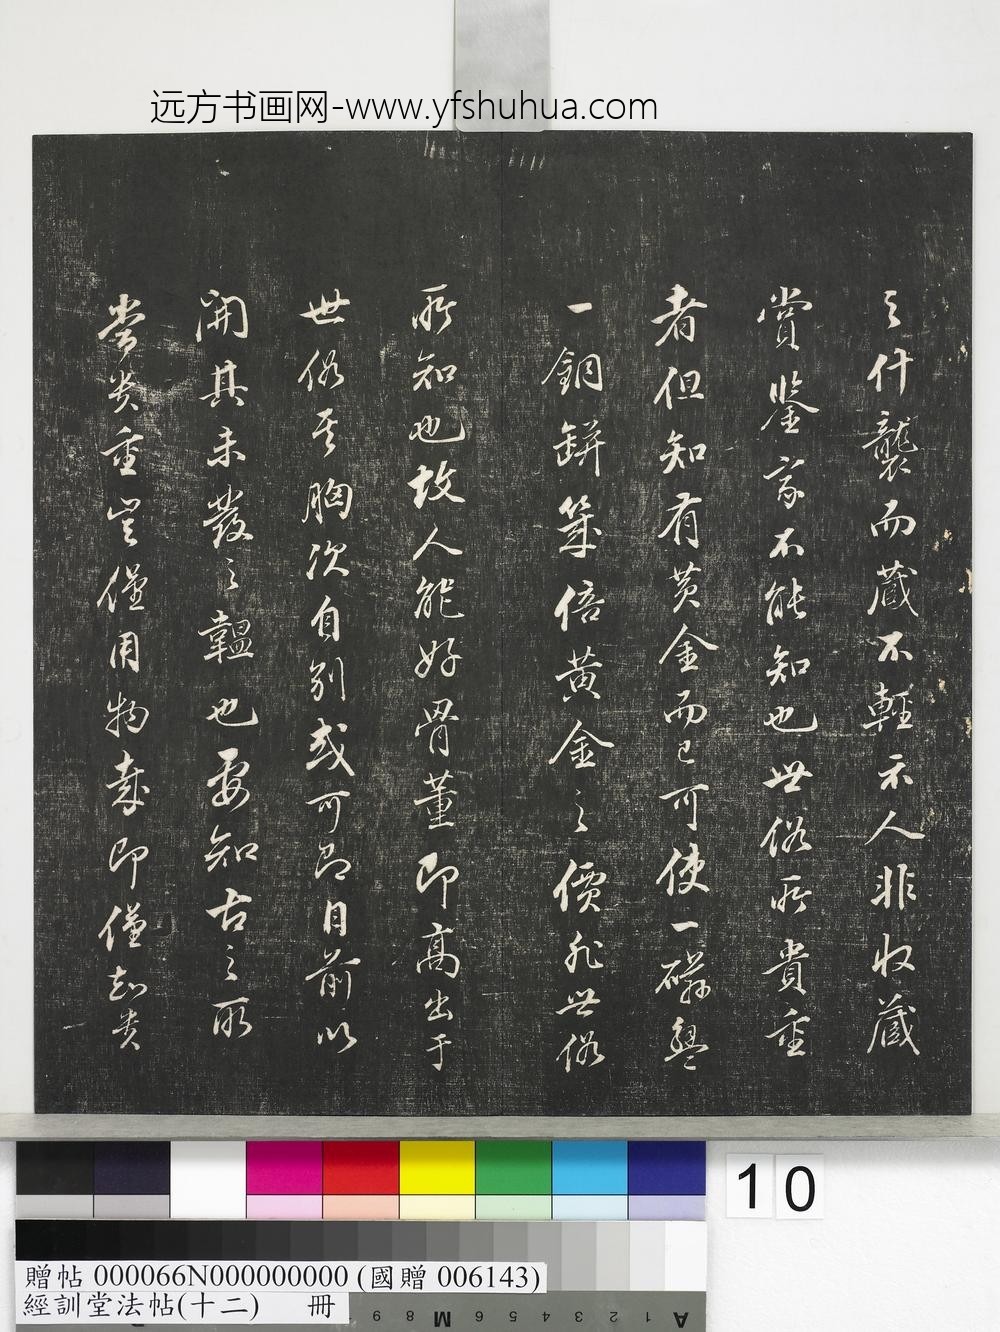 远方书画网-www.yfshuhua.com
之什襲而藏不輕示人非收藏
賞鑒家不能知也世俗所貴重
者但知有黃金而已可使一磁盤
一銅缾幾倍黃金之價非世俗
所知也故人能好骨董即高出于
世俗其胸次自別或可即目前以
開其未發之韞也要知古之所
嘗貴重豈僅用物哉即僅知貴
10
贈帖 000066N000000000 (國贈 006143)
經訓堂法帖(十二) 冊
9 8 M 6 5 4 3 2 1 A